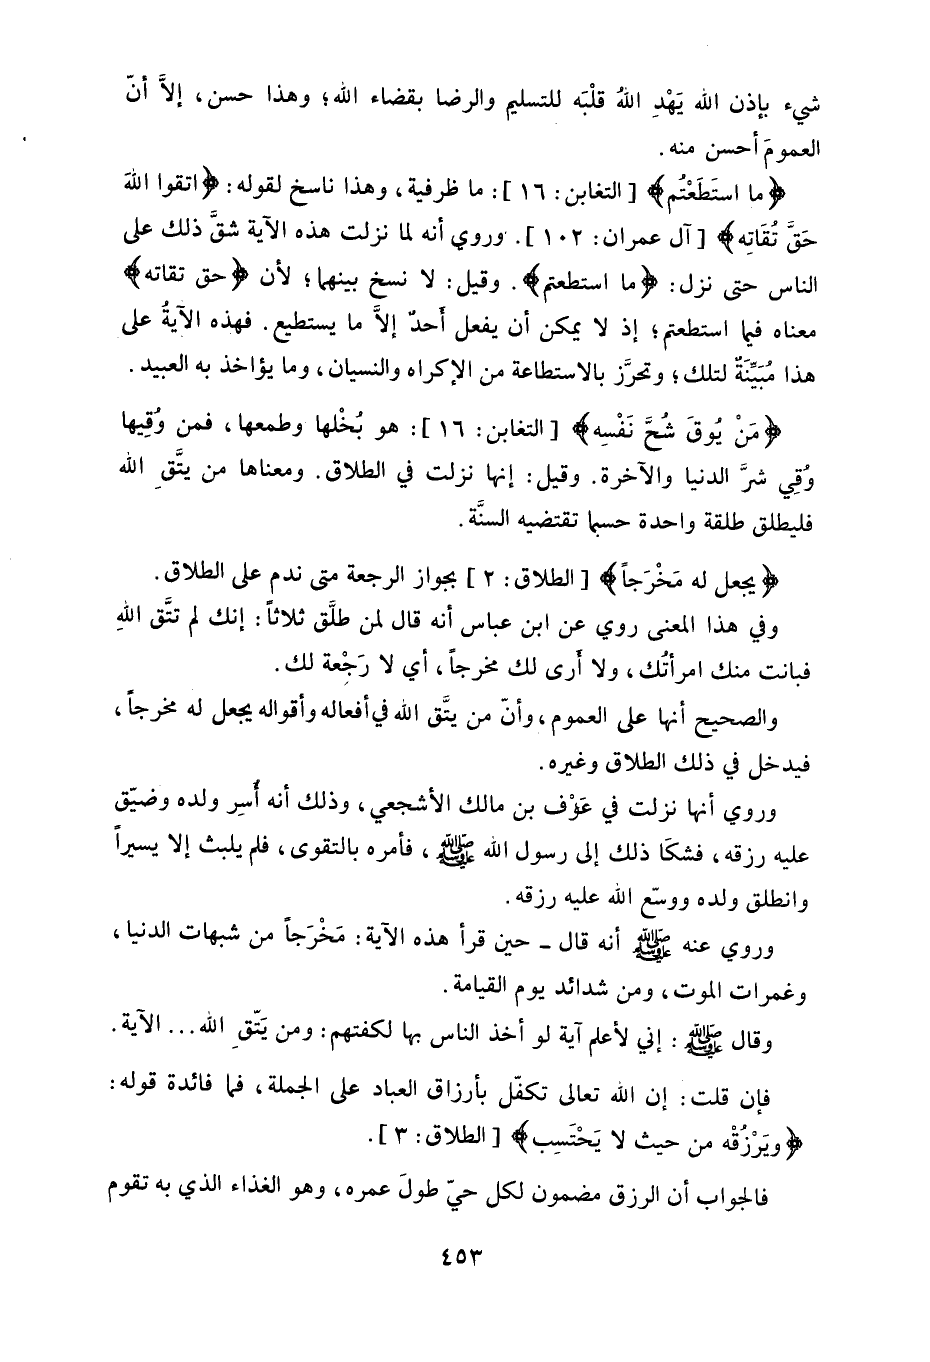 شيء بإذن الله يَهْدِ اللهُ قلْبَه للتسليم والرضا بقضاء الله؛ وهذا حسن، إلاَّ أنّ
العمومَ أحسن منه.
﴿ما استَطَعْتُم﴾ [التغابن: ١٦]: ما ظرفية، وهذا ناسخ لقوله: ﴿اتقوا اللهَ
حَقَّ تُقَاتِه﴾ [آل عمران: ١٠٢]. وروي أنه لما نزلت هذه الآية شقَّ ذلك على
الناس حتى نزل: ﴿ما استطعتم﴾. وقيل: لا نسخ بينهما؛ لأن ﴿حق تقاته﴾
معناه فيما استطعتم؛ إذ لا يمكن أن يفعل أَحدٌ إلاَّ ما يستطيع. فهذه الآيةُ على
هذا مُبَيِّنَةٌ لتلك؛ وتحرَّز بالاستطاعة من الإكراه والنسيان، وما يؤاخذ به العبيد.
﴿مَنْ يُوقَ شُحَّ نَفْسِه﴾ [التغابن: ١٦]: هو بُخْلها وطمعها، فمن وُقِيها
وُقِي شرَّ الدنيا والآخرة. وقيل: إنها نزلت في الطلاق. ومعناها من يتَّق ِ الله
فليطلق طلقة واحدة حسبما تقتضيه السنَّة.
﴿يجعل له مَخْرَجاً﴾ [الطلاق: ٢] بجواز الرجعة متى ندم على الطلاق.
وفي هذا المعنى روي عن ابن عباس أنه قال لمن طلَّق ثلاثاً: إنك لم تتَّق اللهِ
فبانت منك امرأتُك، ولا أَرى لك مخرجاً، أي لا رَجْعة لك.
والصحيح أنها على العموم، وأنّ من يتَّق الله في أفعاله وأقواله يجعل له مخرجاً،
فيدخل في ذلك الطلاق وغيره.
وروي أنها نزلت في عَوْف بن مالك الأشجعي، وذلك أنه أُسِر ولده وضيّق
عليه رزقه، فشكَا ذلك إلى رسول الله ﷺ، فأمره بالتقوى، فلم يلبث إلا يسيراً
وانطلق ولده ووسّع الله عليه رزقه.
وروي عنه ﷺ أنه قال - حين قرأ هذه الآية: مَخْرَجاً من شبهات الدنيا،
وغمرات الموت، ومن شدائد يوم القيامة.
وقال ﷺ: إني لأعلم آية لو أخذ الناس بها لكفتهم: ومن يَتّق ِ الله... الآية.
فإن قلت: إن الله تعالى تكفّل بأرزاق العباد على الجملة، فما فائدة قوله:
﴿ويَرْزُقْه من حيث لا يَحْتَسِب﴾ [الطلاق: ٣].
فالجواب أن الرزق مضمون لكل حيّ طولَ عمره، وهو الغذاء الذي به تقوم
٤٥٣